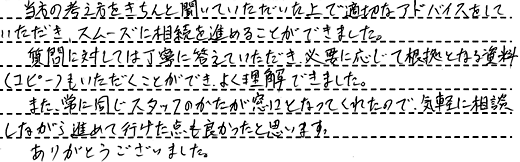 当方の考え方をきちんと聞いていただいた上で適切なアドバイスをして
いただき、スムーズに相続を進めることができました。
質問に対しては丁寧に答えていただき、必要に応じて根拠となる資料
(コピー)もいただくことができ、よく理解できました。
また、常に同じスタッフのかたが窓口となってくれたので、気軽に相談
しながら進めて行けた点も良かったと思います。
ありがとうございました。